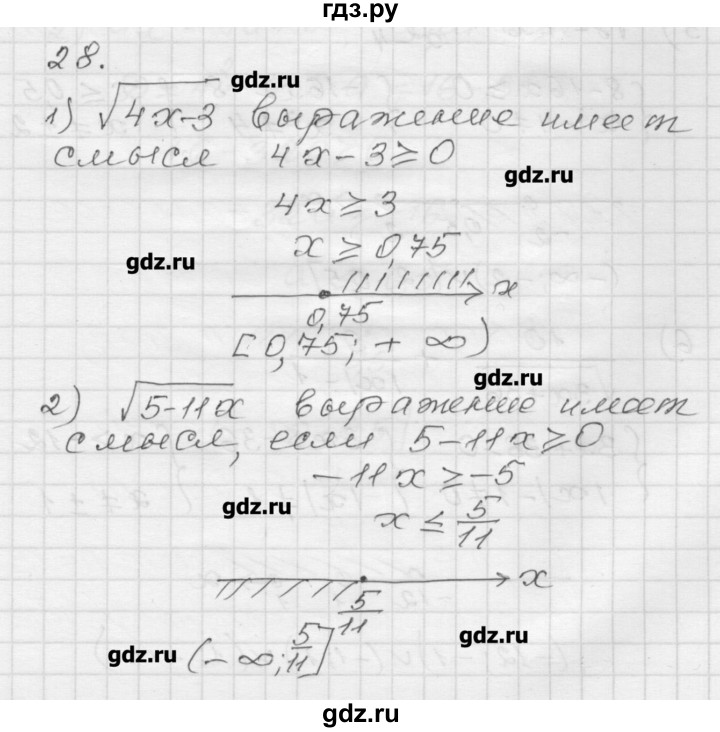 гдз.ру
28.
gdz.ru
1) √4x-3 выражение имеет
смысл 4x-3≥0
gdz.ru
4x≥3
x≥0,75
gdz.ru
x
0,75
[0,75; +∞)
gdz.ru
2) √5-11x выражение имеет
смысл, если 5-11x≥0
-11x≥-5
gdz.ru
x≤5/11
x
5/11
gdz.ru
gdz.ru
(-∞; 5/11]
gdz.ru